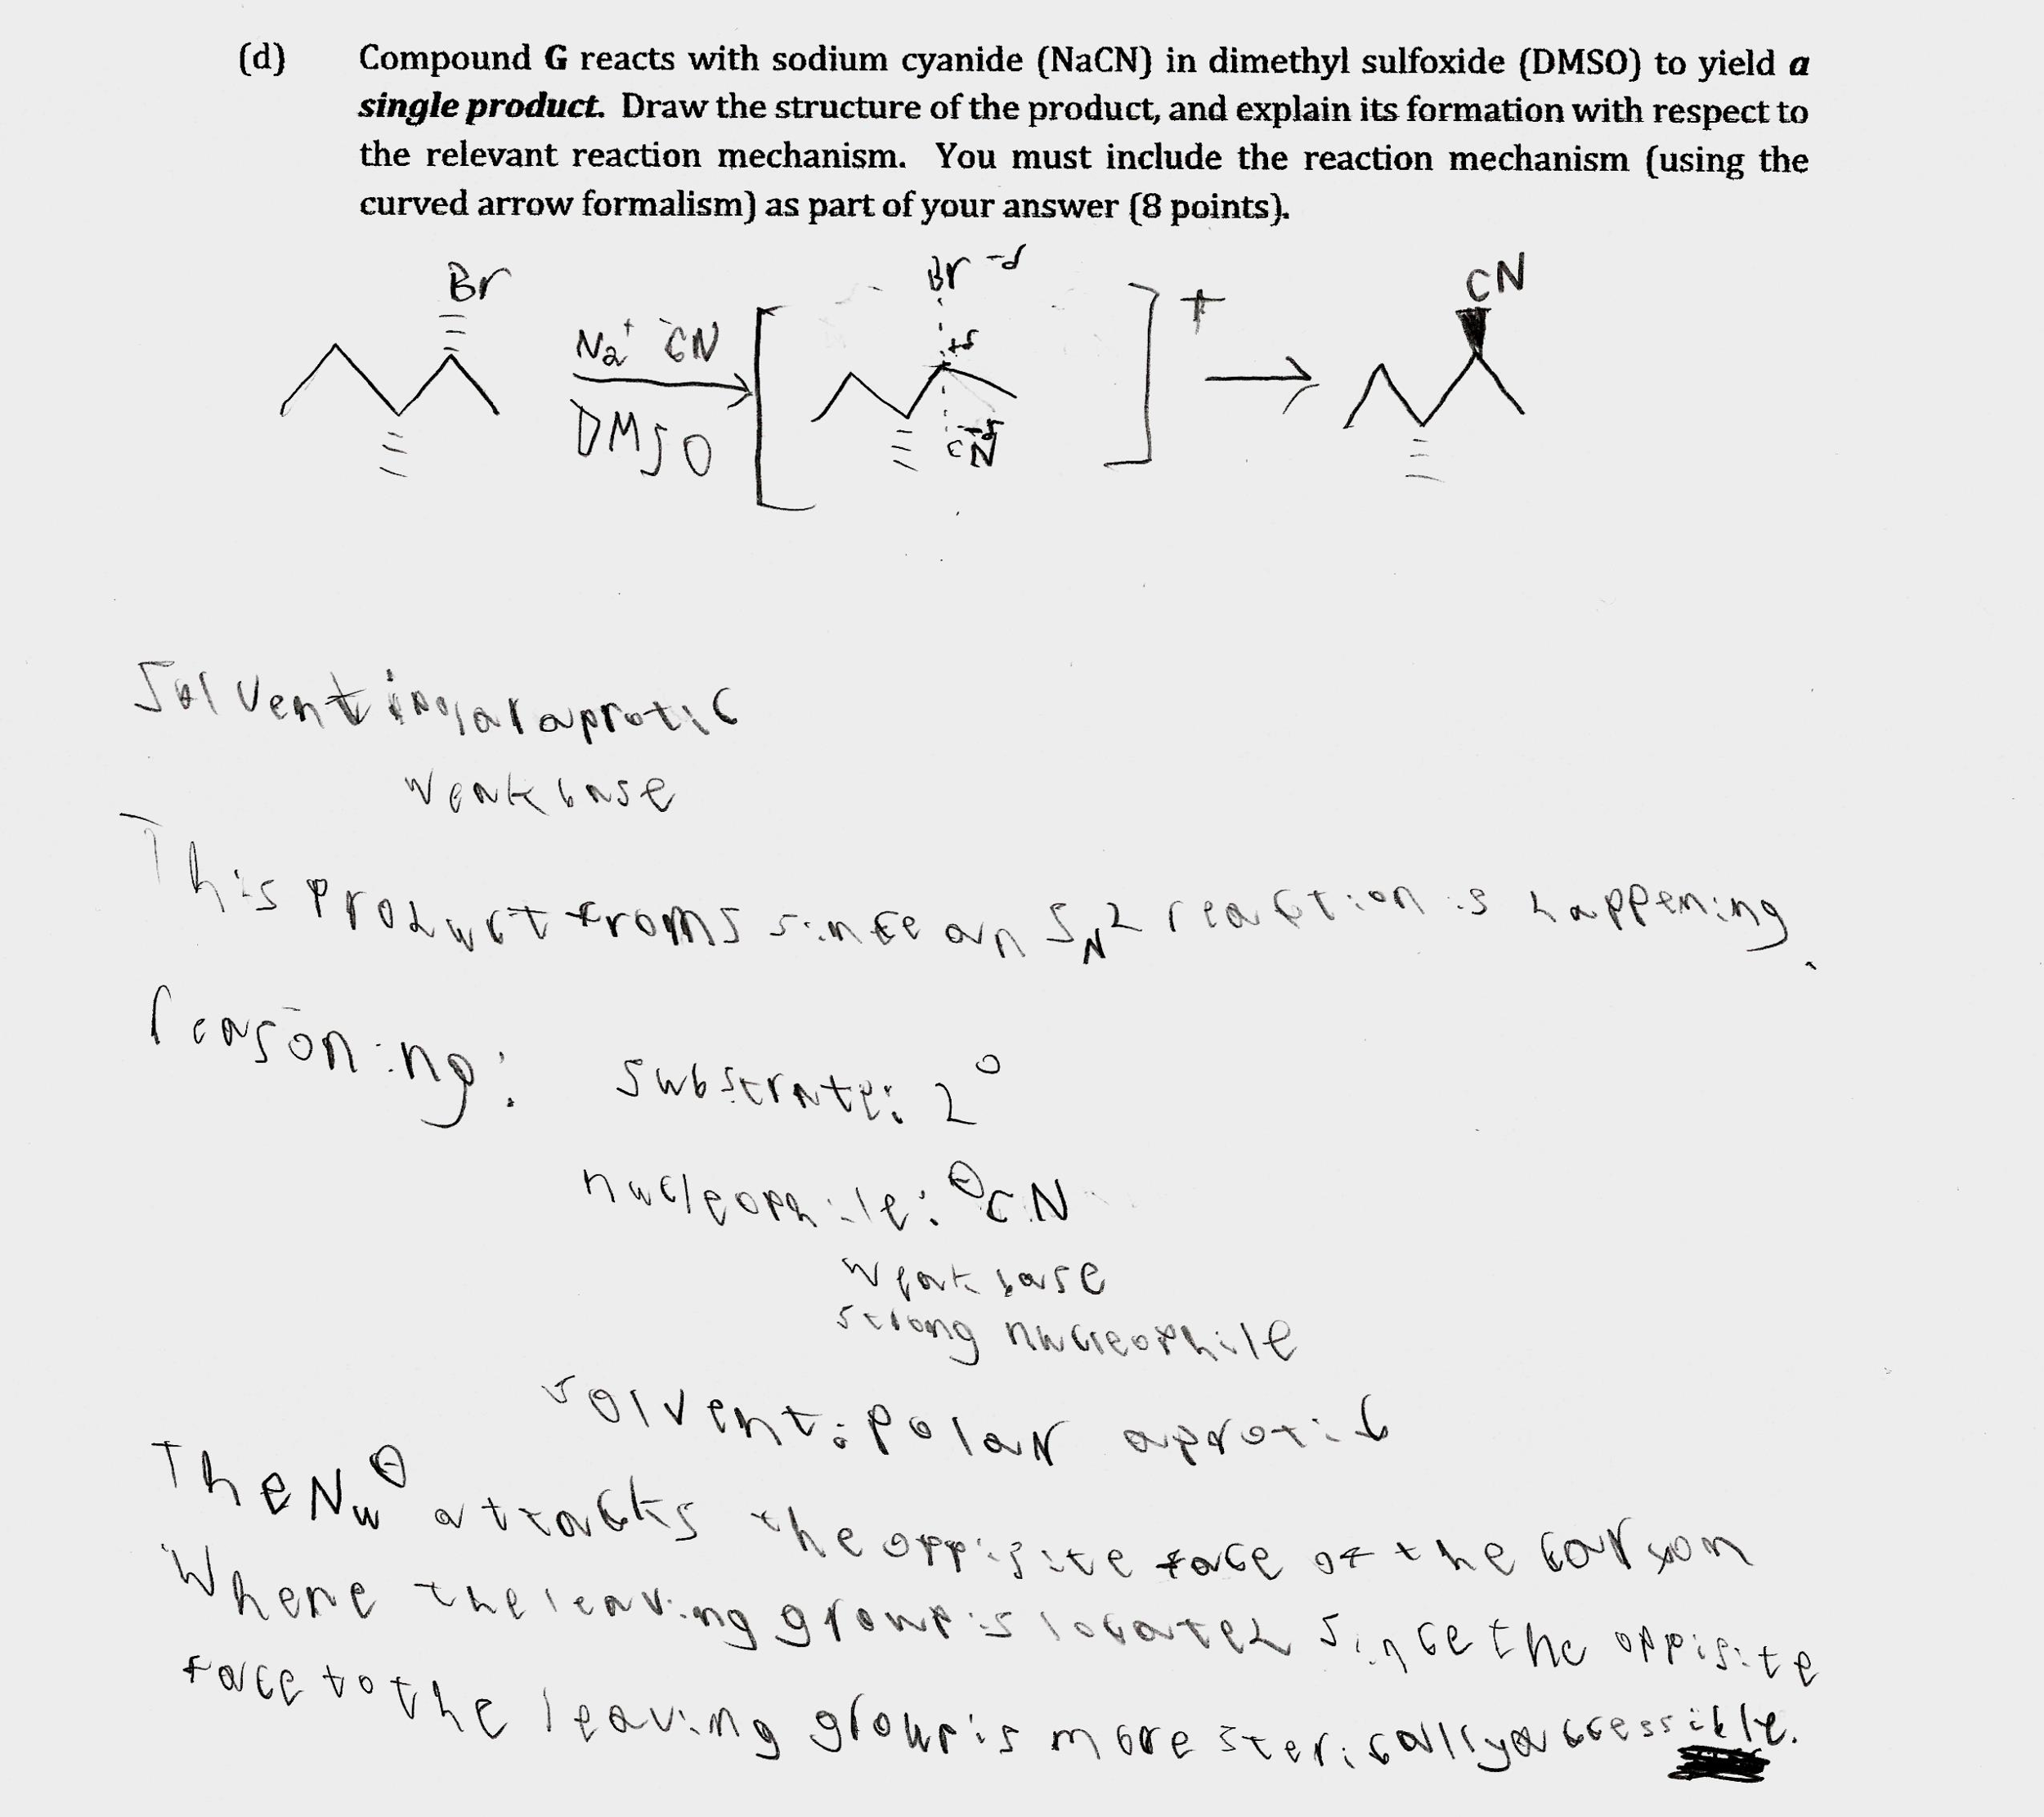 (d) Compound G reacts with sodium cyanide (NaCN) in dimethyl sulfoxide (DMSO) to yield a
single product. Draw the structure of the product, and explain its formation with respect to
the relevant reaction mechanism. You must include the reaction mechanism (using the
curved arrow formalism) as part of your answer (8 points).
Br
Na⁺ ⁻CN
DMSO
Br -δ
+δ
CN -δ
‡
CN
Solvent polar aprotic
weak base
This product froms since an SN2 reaction is happening.
reasoning: substrate: 2°
nucleophile: ⊖CN
weak base
strong nucleophile
solvent: polar aprotic
The Nu⊖ attacks the oppisite face of the carbon
Where the leaving group is located since the oppisite
face to the leaving group is more sterically accessible.